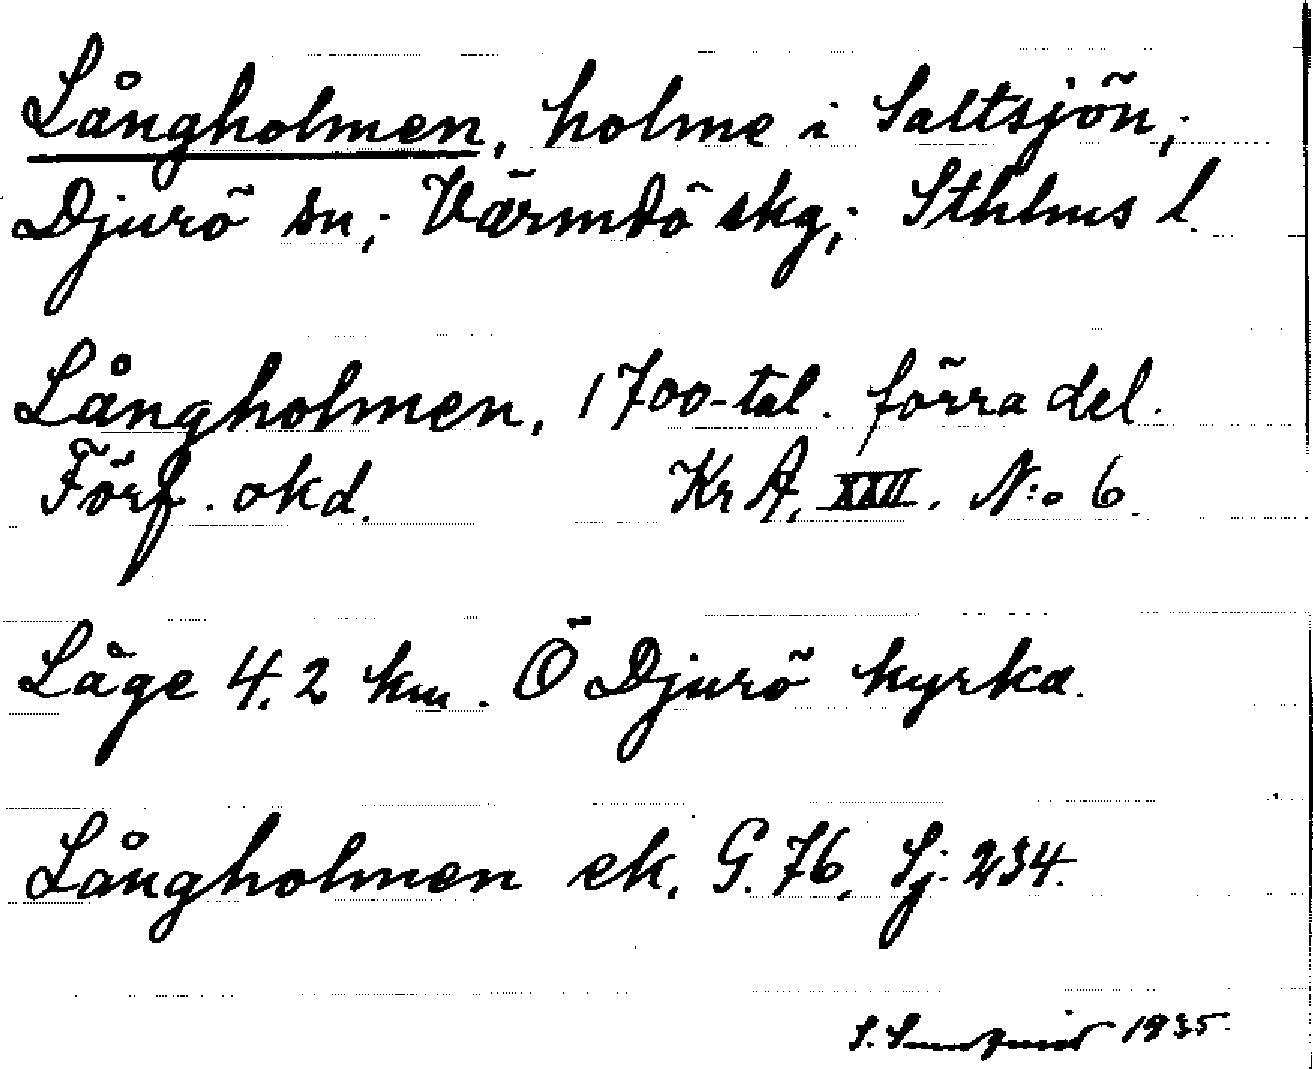 Långholmen, holme i Saltsjön,;
Djurö sn,; Värmdö skg,; Sthlms l.
Långholmen, 1700-tal. förra del.
Förf. okd. Kr A, XXII. N:o 6.
Läge 4.2 km. Ö Djurö kyrka.
Långholmen ek. G. 76, Sj. 234.
S. 1935